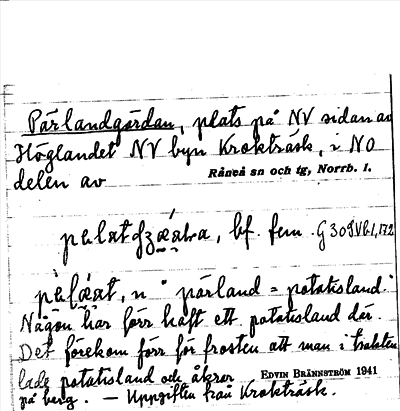 Pärlandgärdan, plats på NV sidan av
Höglandet NV byn Krokträsk, i NO
delen av
Råneå sn och tg, Norrb. l.
bf. fem.
n "pärland = potatisland."
Någon har förr haft ett potatisland där.
Det förekom förr för frosten att man i trakten
lade potatisland och åkrar
EDVIN BRÄNNSTRÖM 1941
på berg. — Uppgiften från Krokträsk.